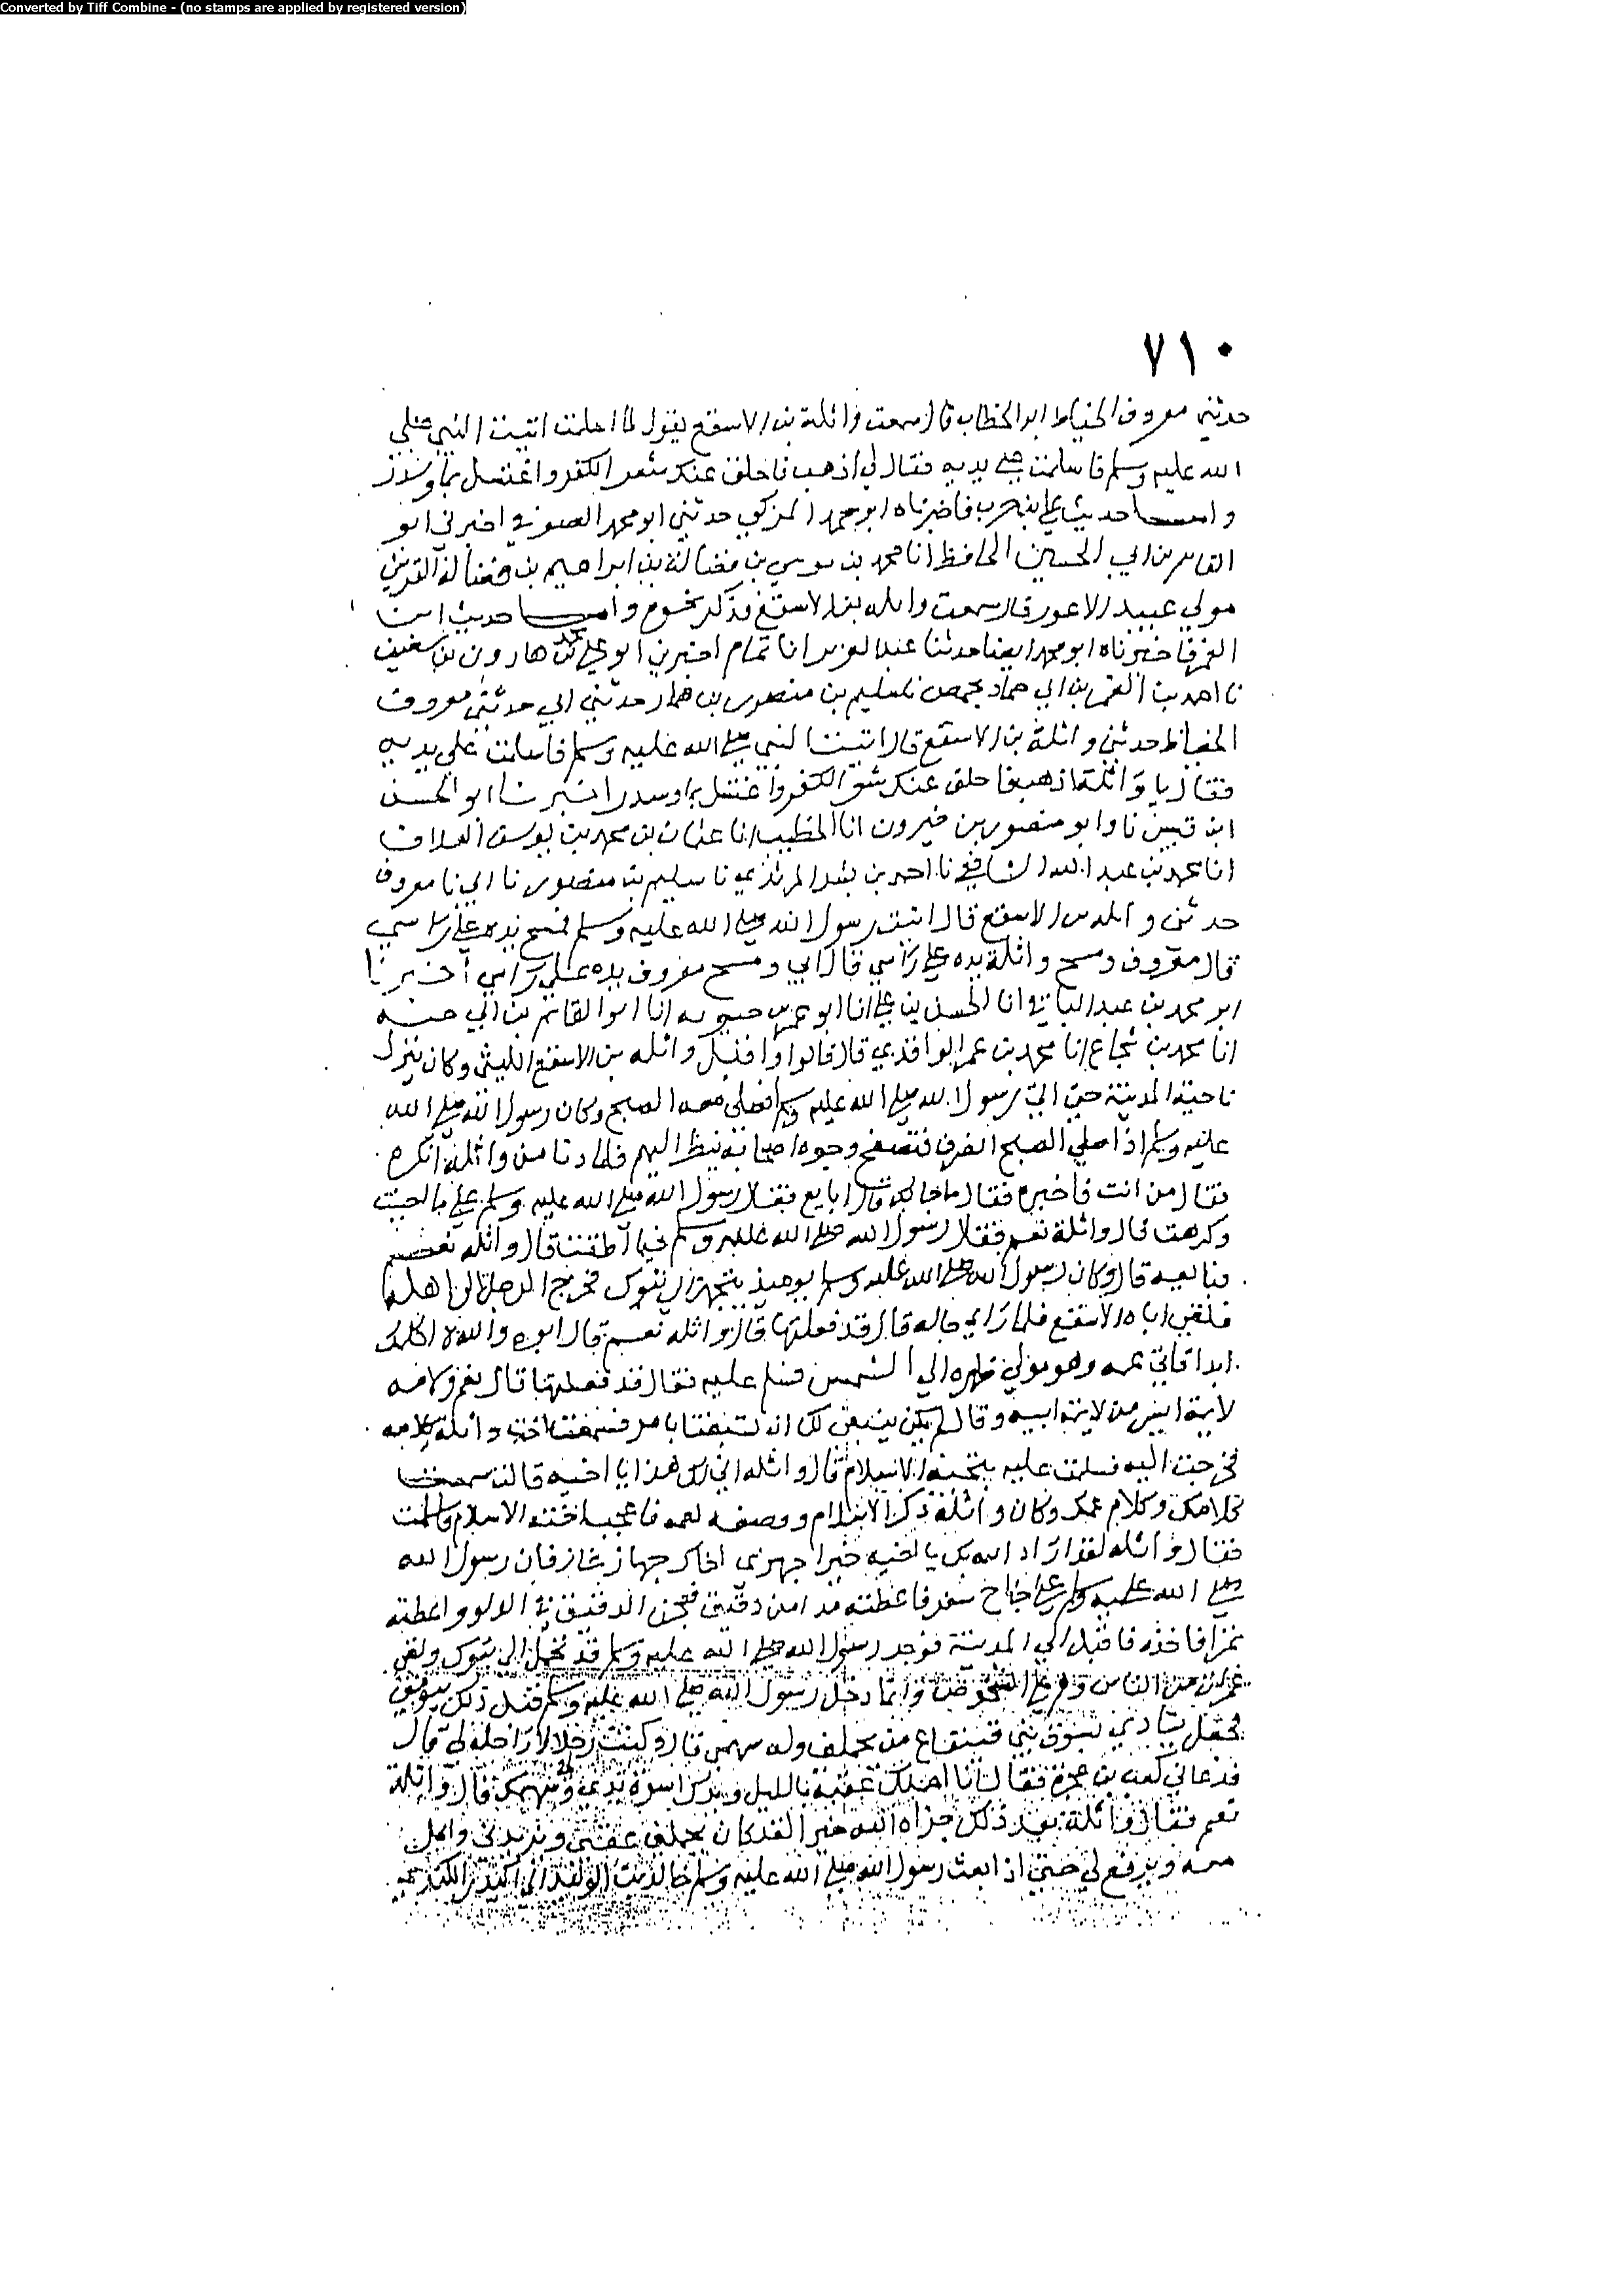 Converted by Tiff Combine - (no stamps are applied by registered version)
٧١٠
حدثني معروف الخياط ابو الخطاب قال سمعت واثلة بن الاسقع يقول لما اسلمت اتيت النبي صلى
الله عليه وسلم فاسلمت على يديه فقال لي اذهب فاحلق عنك شعر الكفر واغتسل بماء وسدر
واما حديث علي بن حرب فاخبرناه ابو محمد المزكي حدثني ابو محمد الصوفي اخبرني ابو
القاسم بن ابي الحسين الحافظ انا محمد بن موسى بن فضالة بن ابراهيم بن فضالة القرشي
مولى عبيد الاعور قال سمعت واثله بن الاسقع فذكر نحوه واما حديث ابن
الغمر فاخبرناه ابو محمد ايضا حدثنا عبد العزيز انا تمام اخبرني ابو علي محمد بن هارون بن شعيب
نا احمد بن الغمر بن ابي حماد بحمص نا سليم بن منصور بن عمار حدثني ابي حدثني معروف
الخياط حدثني واثلة بن الاسقع قال اتيت النبي صلى الله عليه وسلم فاسلمت على يديه
فقال يا واثلة اذهب فاحلق عنك شعر الكفر واغتسل بماء وسدر اخبرنا ابو الحسن
ابن قبيس نا وابو منصور بن خيرون انا الخطيب انا عثمان بن محمد بن يوسف العلاف
انا محمد بن عبد الله الشافعي نا احمد بن بشر المرثدي نا سليم بن منصور نا ابي نا معروف
حدثني واثله بن الاسقع قال اتيت رسول الله صلى الله عليه وسلم فمسح يده على راسي
قال معروف ومسح واثلة يده على راسي قال ابي ومسح معروف يده على راسي أخبرنا
ابو محمد بن عبد الباقي انا الحسن بن علي انا ابو عمر بن حيويه انا ابو القاسم بن ابي حيه
انا محمد بن شجاع انا محمد بن عمر الواقدي قال قالوا واقبل واثله بن الاسقع الليثي وكان ينزل
ناحية المدينة حتى اتى رسول الله صلى الله عليه وسلم فصلى معه الصبح وكان رسول الله صلى الله
عليه وسلم اذا صلى الصبح انصرف فتصفح وجوه اصحابه ينظر اليهم فلما دنا من واثلة انكره
فقال من انت فاخبره فقال ما جاء بك قال ابايع فقال رسول الله صلى الله عليه وسلم على ما احببت
وكرهت قال واثلة نعم فقال رسول الله صلى الله عليه وسلم فيما اطقت قال واثله نعم
فبايعه قال وكان رسول الله صلى الله عليه وسلم يومئذ يتجهز الى تبوك فخرج الرجل الى اهله
فلقي اباه الاسقع فلما راى حاله قال قد فعلتها قال واثله نعم قال ابوه والله لا اكلمك
ابدا فاتى عمه وهو مولي ظهره الى الشمس فسلم عليه فقال قد فعلتها قال نعم ولامه
لايمة ايسر من لايمة ابيه وقال لم يكن ينبغي لك ان تسبقنا بامر فسمعت اخت واثلة كلامه
فخرجت اليه فسلمت عليه بتحية الاسلام قال واثله انى لك هذا يا اخيه قالت سمعت
كلامك وكلام عمك وكان واثلة ذكر الاسلام ووصفه لعمه فاعجب اخته الاسلام فاسلمت
فقال واثله لقد اراد الله بك يا اخيه خيرا جهزي اخاك جهاز غاز فان رسول الله
صلى الله عليه وسلم على جناح سفر فاعطته مدا من دقيق فعجن الدقيق في الدلو واعطته
تمرا فاخذه فاقبل الى المدينة فوجد رسول الله صلى الله عليه وسلم قد تحمل الى تبوك وبقي
من الناس وهم على الشخوص وانما رحل رسول الله صلى الله عليه وسلم قبل ذلك بيومين
فجعل ينادي بسوق بني قينقاع من يحملني وله سهمي قال وكنت رجلا لا راحلة لي قال
فدعاني كعب بن عجرة فقال انا احملك عقبة بالليل ويدك اسوة يدي وسهمك لي قال واثلة
نعم فقال واثلة بعد ذلك جزاه الله خيرا لقد كان يحملني عقبتي ويزيدني واكل
معه ويرفع لي حتى اذا بعث رسول الله صلى الله عليه وسلم خالد بن الوليد الى اكيدر الكندي